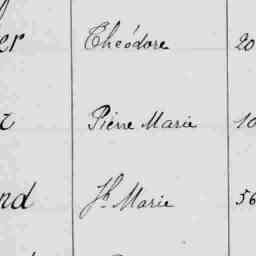 er Théodore 20
r Pierre Marie 10
nd Jh Marie 56